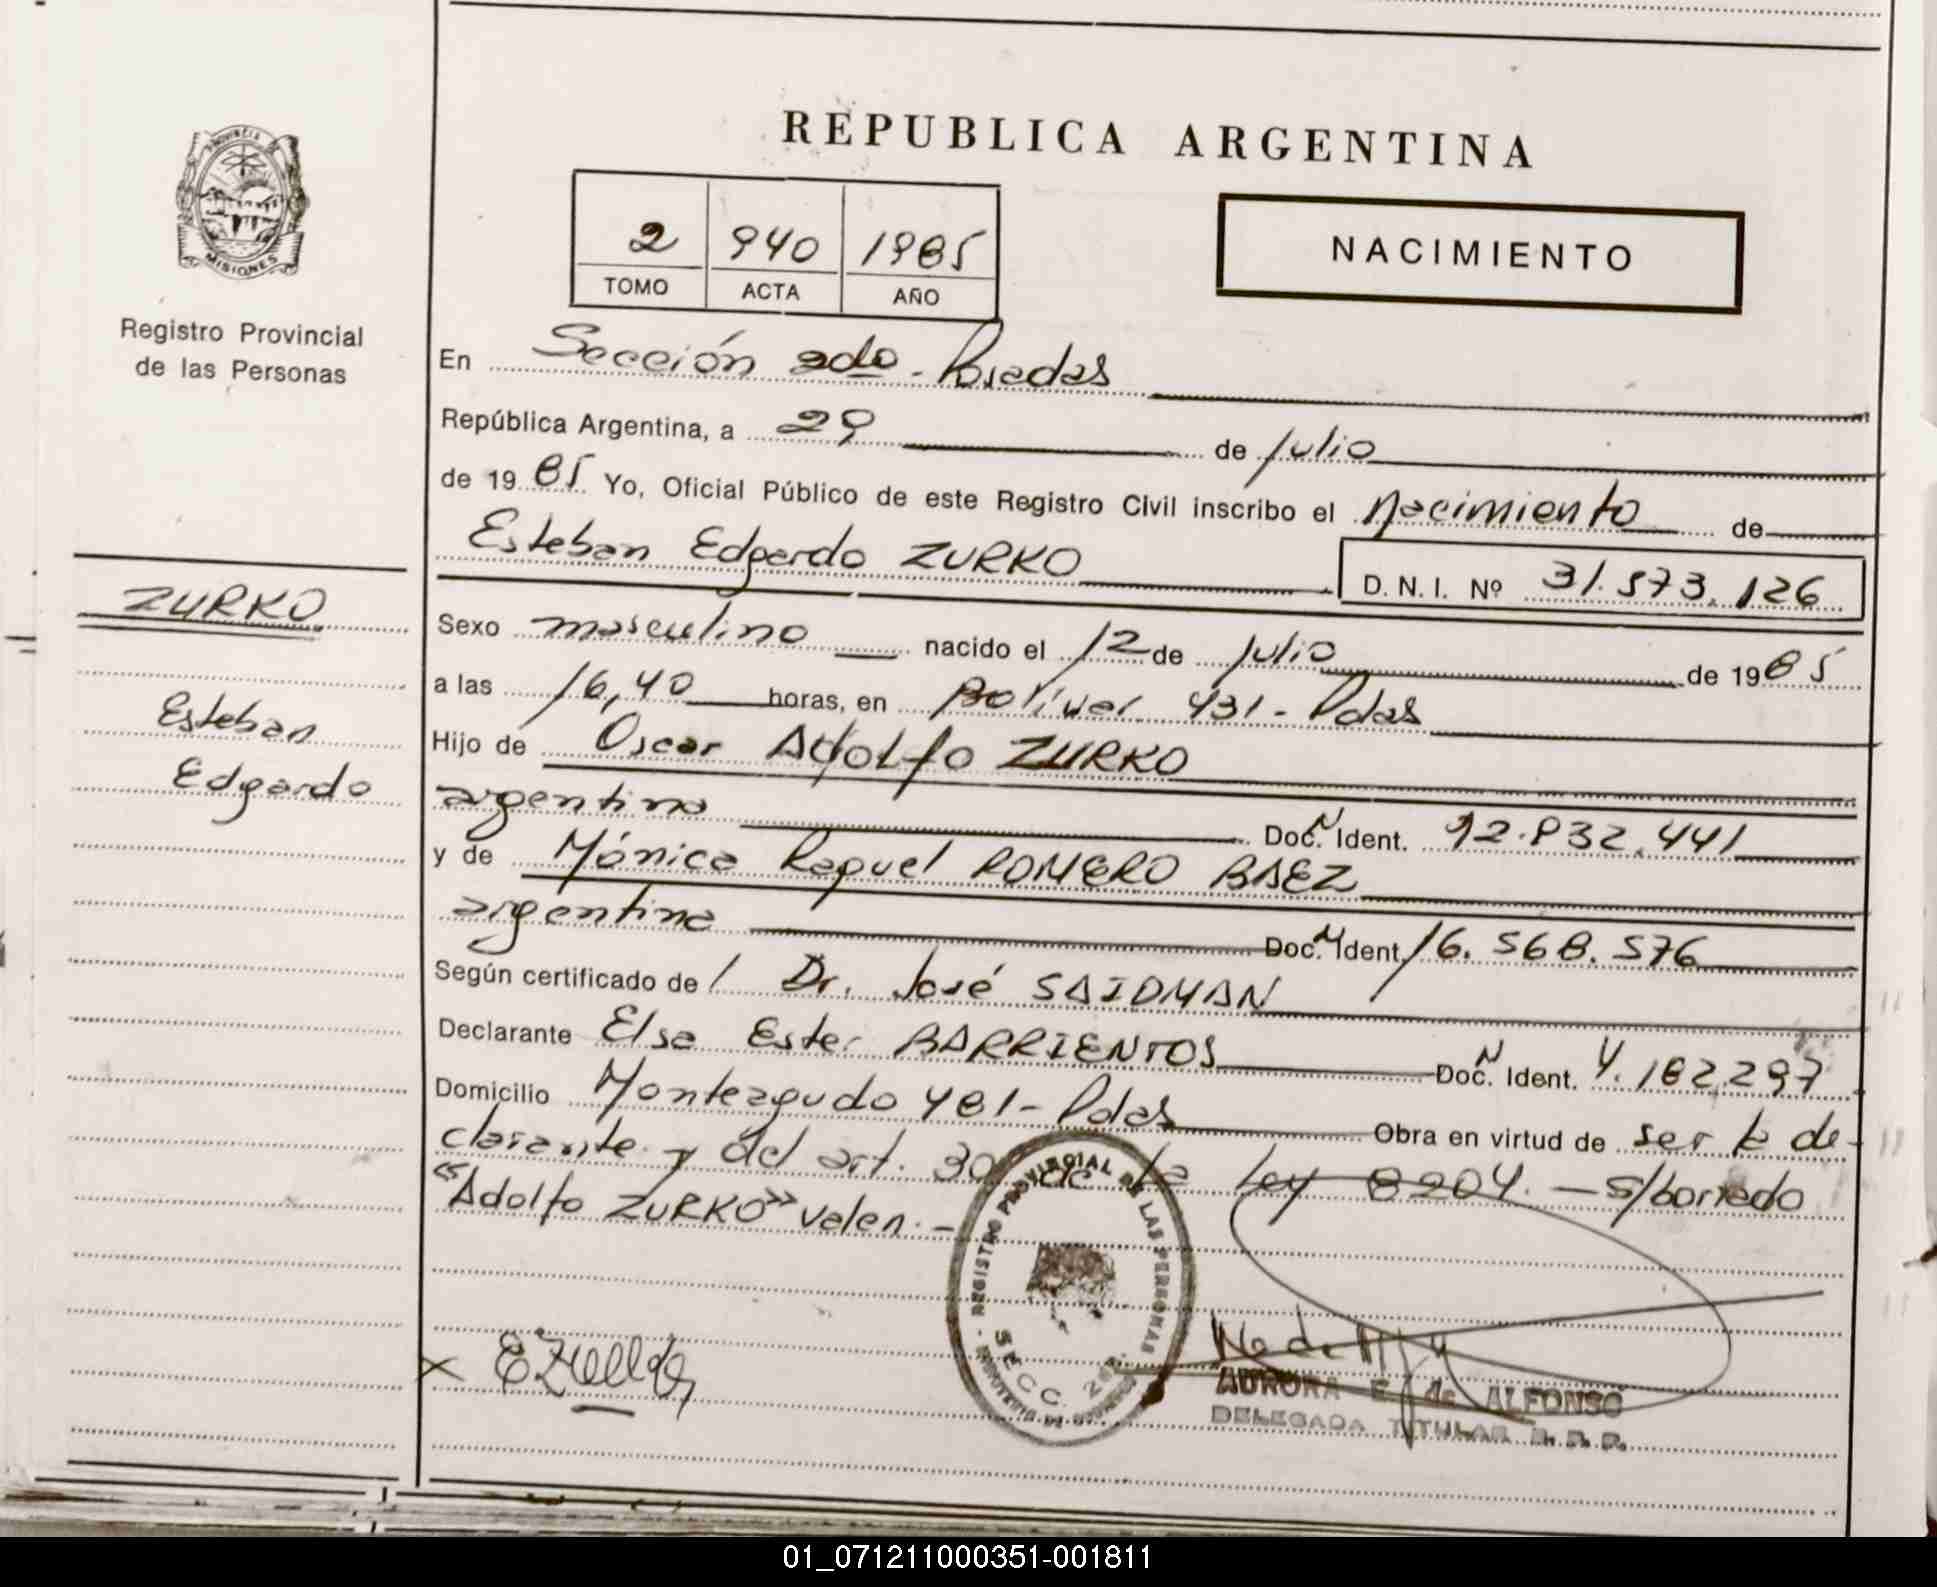 REPUBLICA ARGENTINA
PROVINCIA DE
MISIONES
Registro Provincial
de las Personas
2 940 1985
TOMO ACTA AÑO
NACIMIENTO
En Sección 2do - Posadas
República Argentina, a 29 de julio
de 1985 Yo, Oficial Público de este Registro Civil inscribo el nacimiento de
Esteban Edgardo ZURKO D. N. I. Nº 31.573.126
ZURKO
Esteban
Edgardo
Sexo masculino nacido el 12 de julio de 1985
a las 16,40 horas, en Bolívar 431 - Pdas
Hijo de Oscar Adolfo ZURKO
argentino Doc. N Ident. 12.832.441
y de Mónica Raquel ROMERO BAEZ
argentina Doc. N Ident. 16.568.576
Según certificado de l Dr. José SAIDMAN
Declarante Elsa Ester BARRIENTOS Doc. N Ident. 4.182.297
Domicilio Monteagudo 481 - Pdas Obra en virtud de ser la de-
clarante y del art. 30 de la Ley 8204. - s/borrado
"Adolfo ZURKO" valen. -
REGISTRO PROVINCIAL DE LAS PERSONAS
SECC. 2da.
AURORA E. de ALFONSO
DELEGADA TITULAR R. P. P.
01_071211000351-001811